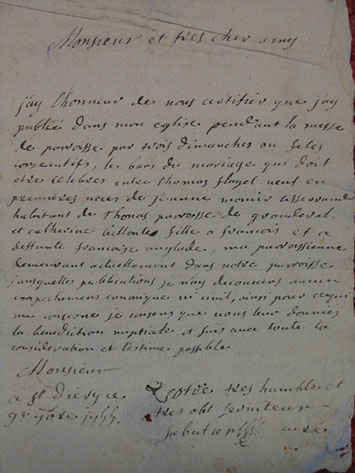 Monsieur et tres cher amy
jay l'honneur de vous certiffier que jay
publié dans mon eglise pendant la messe
de parroisse par trois dimanches ou fetes
consecutifs, les bans du mariage qui doit
etre celebres entre Thomas flaget veuf en
premières noces de jeanne monier tisserand
habitant de Thomas parroisse de grandeval
et catherine fille a francois et a
deffunte francoise anglade, ma parroissienne
demeurant actuellement dans votre parroisse
jusquelles publications je n'ay decouvers aucun
empechement canonique ni civil, ainsi pour ce qui
me concerne je consens que vous leur donnies
la benediction nuptiale et suis avec toute la
consideration et l'estime possible
Monsieur
a st
Votre tres humble et
tres obt serviteur
curé